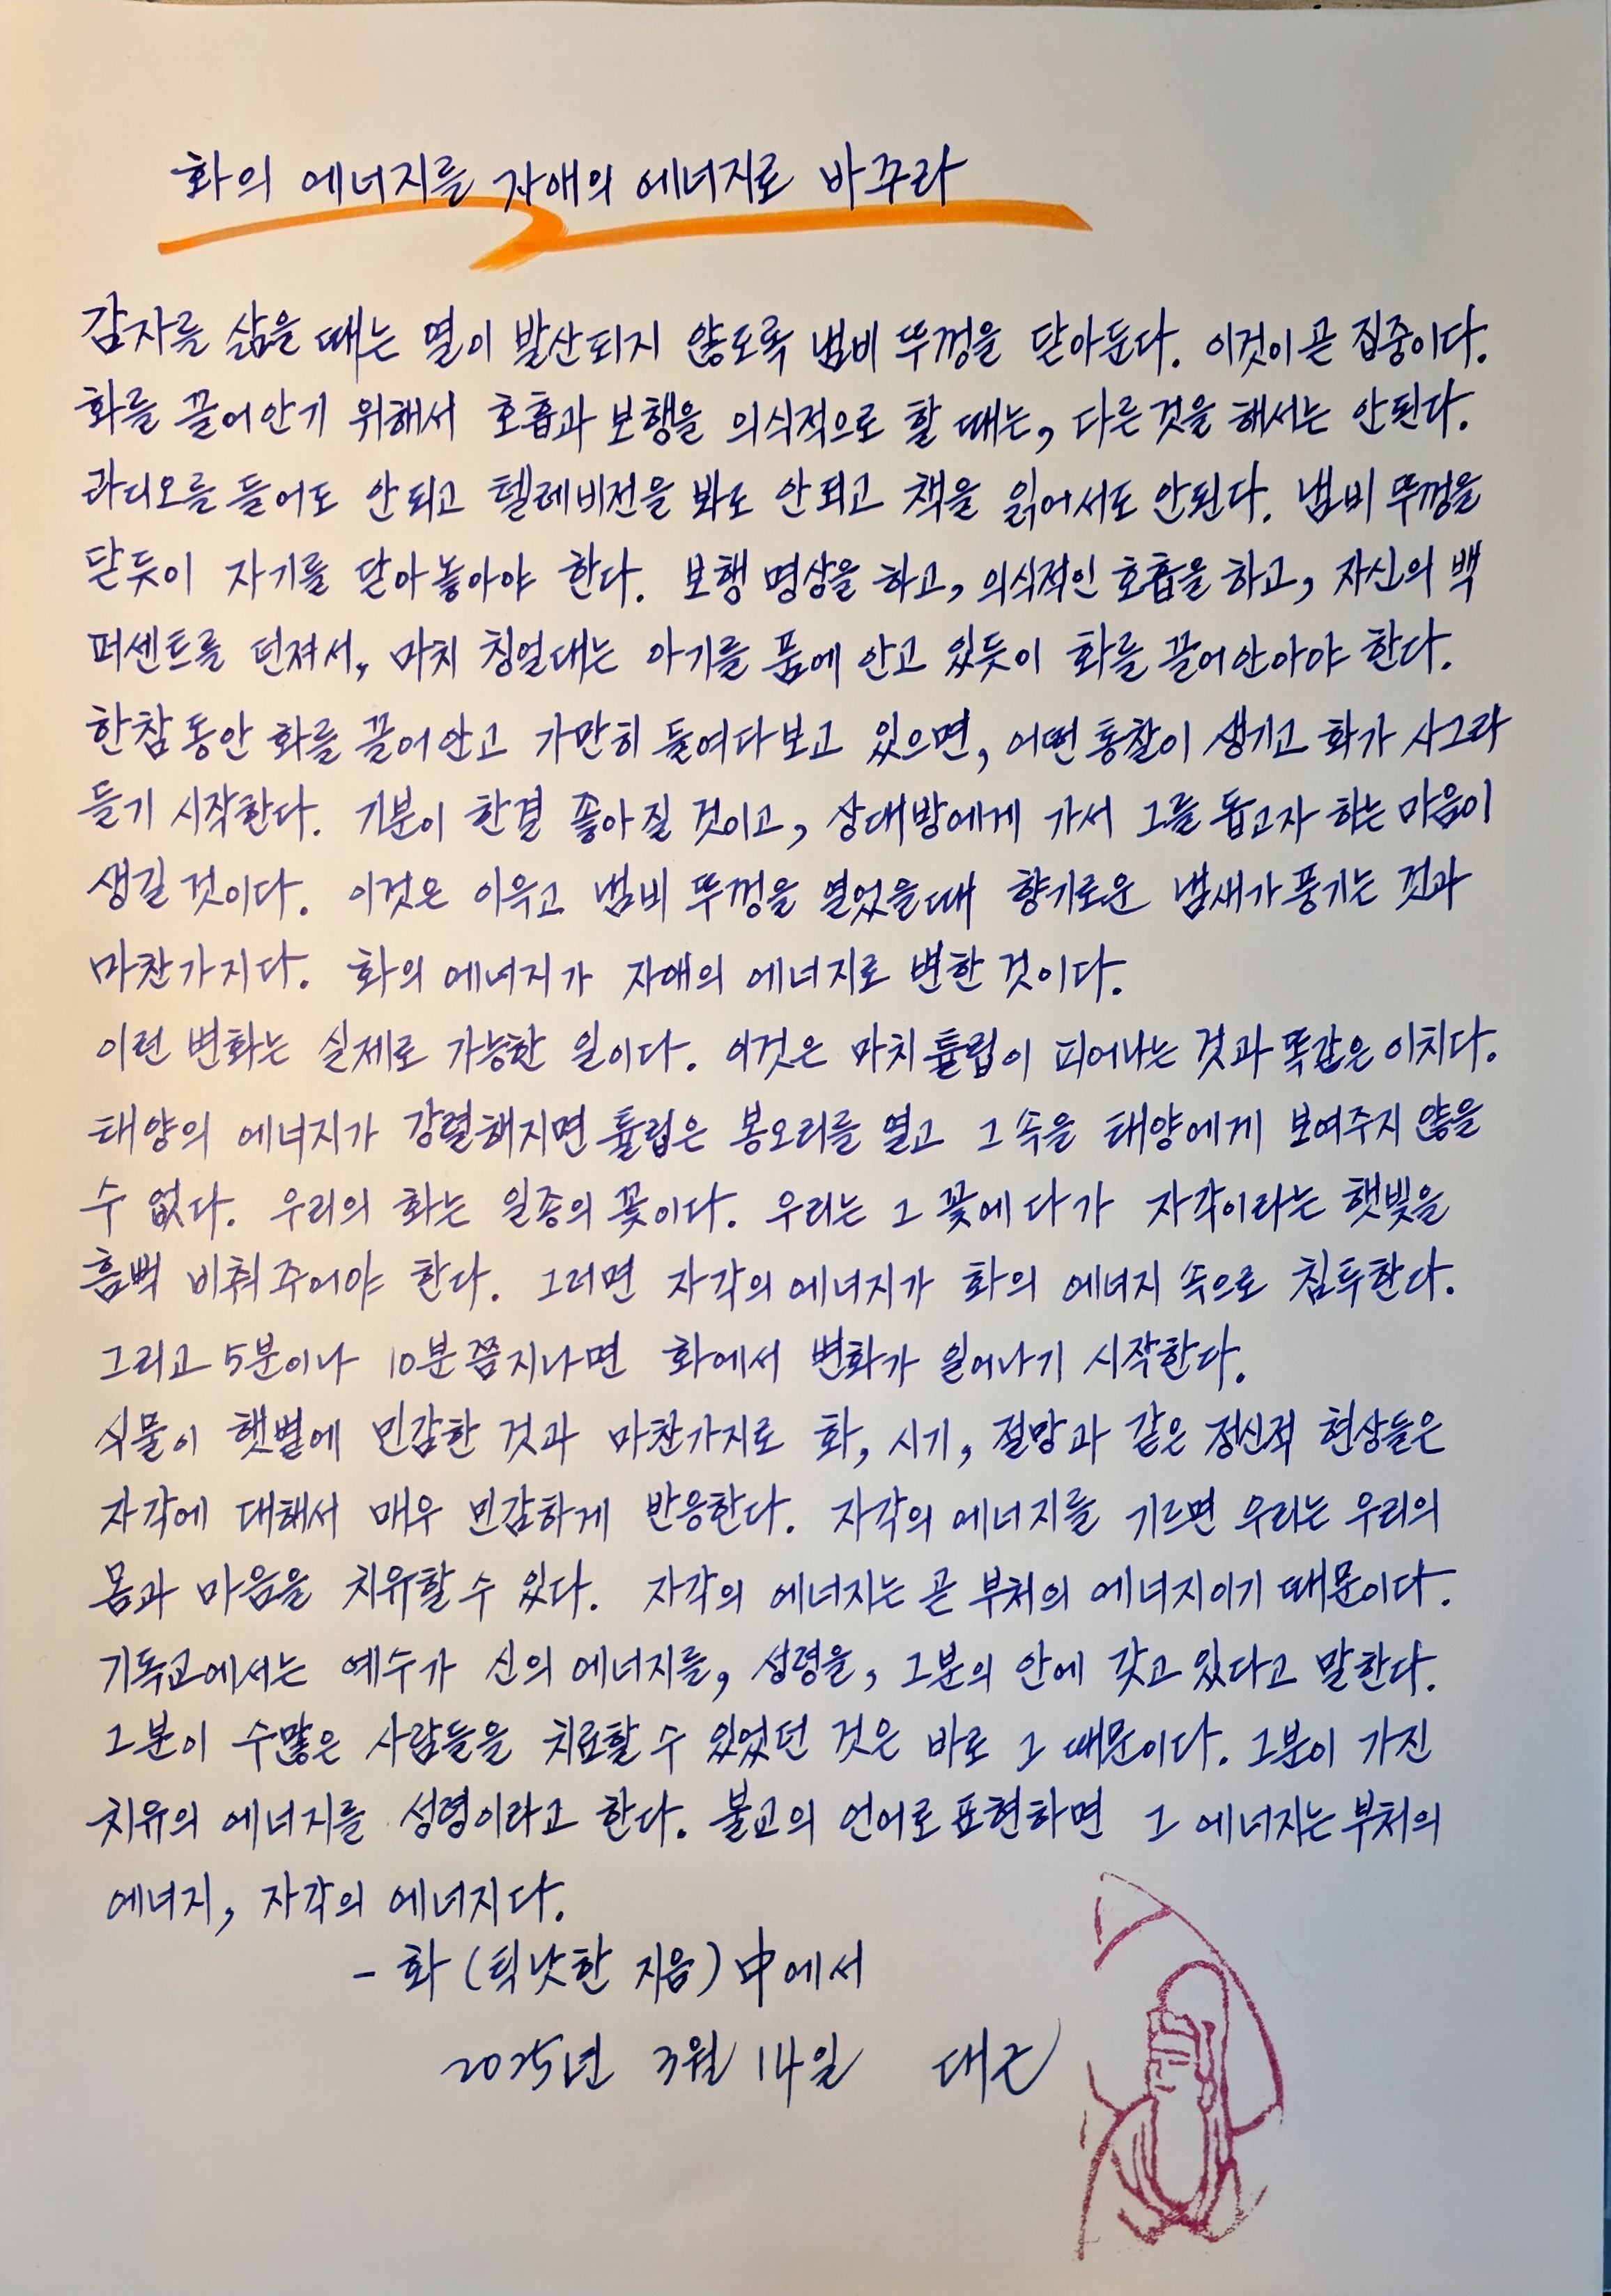 화의 에너지를 자애의 에너지로 바꾸라
감자를 삶을 때는 열이 발산되지 않도록 냄비 뚜껑을 닫아둔다. 이것이 곧 집중이다.
화를 끌어안기 위해서 호흡과 보행을 의식적으로 할 때는, 다른것을 해서는 안된다.
라디오를 들어도 안되고 텔레비전을 봐도 안되고 책을 읽어서도 안된다. 냄비 뚜껑을
닫듯이 자기를 닫아 놓아야 한다. 보행 명상을 하고, 의식적인 호흡을 하고, 자신의 백
퍼센트를 던져서, 마치 칭얼대는 아기를 품에 안고 있듯이 화를 끌어안아야 한다.
한참 동안 화를 끌어안고 가만히 들여다보고 있으면, 어떤 통찰이 생기고 화가 사그라
들기 시작한다. 기분이 한결 좋아질 것이고, 상대방에게 가서 그를 돕고자 하는 마음이
생길 것이다. 이것은 이윽고 냄비 뚜껑을 열었을때 향기로운 냄새가 풍기는 것과
마찬가지다. 화의 에너지가 자애의 에너지로 변한 것이다.
이런 변화는 실제로 가능한 일이다. 이것은 마치 튤립이 피어나는 것과 똑같은 이치다.
태양의 에너지가 강렬해지면 튤립은 봉오리를 열고 그 속을 태양에게 보여주지 않을
수 없다. 우리의 화는 일종의 꽃이다. 우리는 그 꽃에다가 자각이라는 햇빛을
흠뻑 비춰주어야 한다. 그러면 자각의 에너지가 화의 에너지 속으로 침투한다.
그리고 5분이나 10분쯤 지나면 화에서 변화가 일어나기 시작한다.
식물이 햇볕에 민감한 것과 마찬가지로 화, 시기, 절망과 같은 정신적 현상들은
자각에 대해서 매우 민감하게 반응한다. 자각의 에너지를 기르면 우리는 우리의
몸과 마음을 치유할 수 있다. 자각의 에너지는 곧 부처의 에너지이기 때문이다.
기독교에서는 예수가 신의 에너지를, 성령을, 그분의 안에 갖고 있다고 말한다.
그분이 수많은 사람들을 치료할 수 있었던 것은 바로 그 때문이다. 그분이 가진
치유의 에너지를 성령이라고 한다. 불교의 언어로 표현하면 그 에너지는 부처의
에너지, 자각의 에너지다.
- 화 (틱낫한 지음) 中에서
2025년 3월 14일 대근